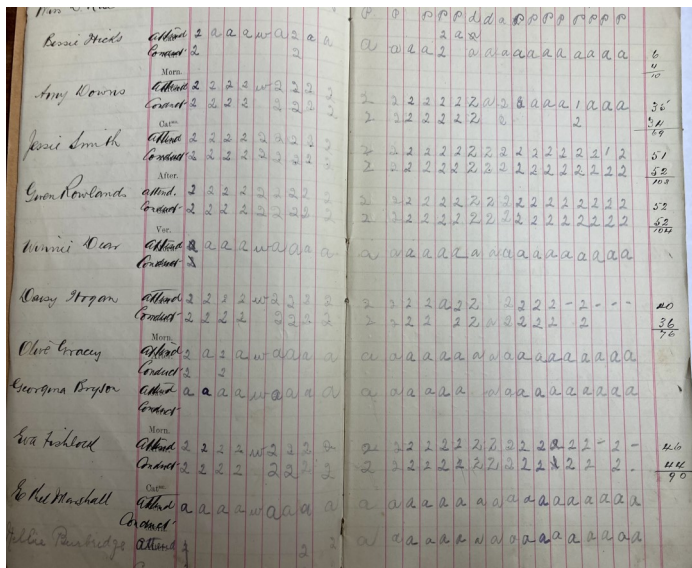 P P P P P d d a P P P P P P P P
Bessie Hicks Attend 2 a a a w a 2 a a 2 a 2
Conduct 2 2 a a a a 2 a a a a a a a a a a 6
4
10
Morn.
Amy Downs Attend 2 2 2 2 w 2 2 2 2
Conduct 2 2 2 2 2 2 2 2 2 2 2 2 2 2 2 a 2 a a a 1 a a a 35
2 2 2 2 2 2 2 2 2 34
69
Cat.
Jessie Smith Attend 2 2 2 2 2 2 2 2 2
Conduct 2 2 2 2 2 2 2 2 2 2 2 2 2 2 2 2 2 2 2 2 2 2 2 2 1 2 51
2 2 2 2 2 2 2 2 2 2 2 2 2 2 2 2 2 52
103
After.
Gwen Rowlands Attend. 2 2 2 2 2 2 2 2 2 2 2 2 2 2 2 2 2 2 2 2 2 2 2 2 2 2 52
Conduct 2 2 2 2 2 2 2 2 2 2 2 2 2 2 2 2 2 2 2 2 2 2 2 2 2 2 52
104
Ver.
Winnie Dear Attend a a a a w a a a a a a a a a a a a a a a a a a a a a
Conduct
Daisy Hogan Attend 2 2 2 2 w 2 2 2 2 2 2 2 2 a 2 2 2 2 2 2 - 2 - - - 40
Conduct 2 2 2 2 2 2 2 2 2 2 2 2 2 a 2 2 2 2 2 36
76
Morn.
Olive Gracey Attend 2 a 2 a w a a a a a a a a a a a a a a a a a a a a a
Conduct 2 2
Georgina Bryson Attend a a a a w a a a a a a a a a a a a a a a a a a a a
Conduct
Morn.
Eva Fishlock Attend 2 2 2 2 w 2 2 2 2 2 2 2 2 2 2 2 2 2 2 2 2 2 2 - 2 - 46
Conduct 2 2 2 2 2 2 2 2 2 2 2 2 2 2 2 2 2 2 2 2 2 2 2 2 - 44
90
Cat.
Ethel Marshall Attend a a a a w a a a a a a a a a a a a a a a a a a a a a
Conduct
Burbridge Attend 2 2 2 a a a a a a a a a a a a a a a a a